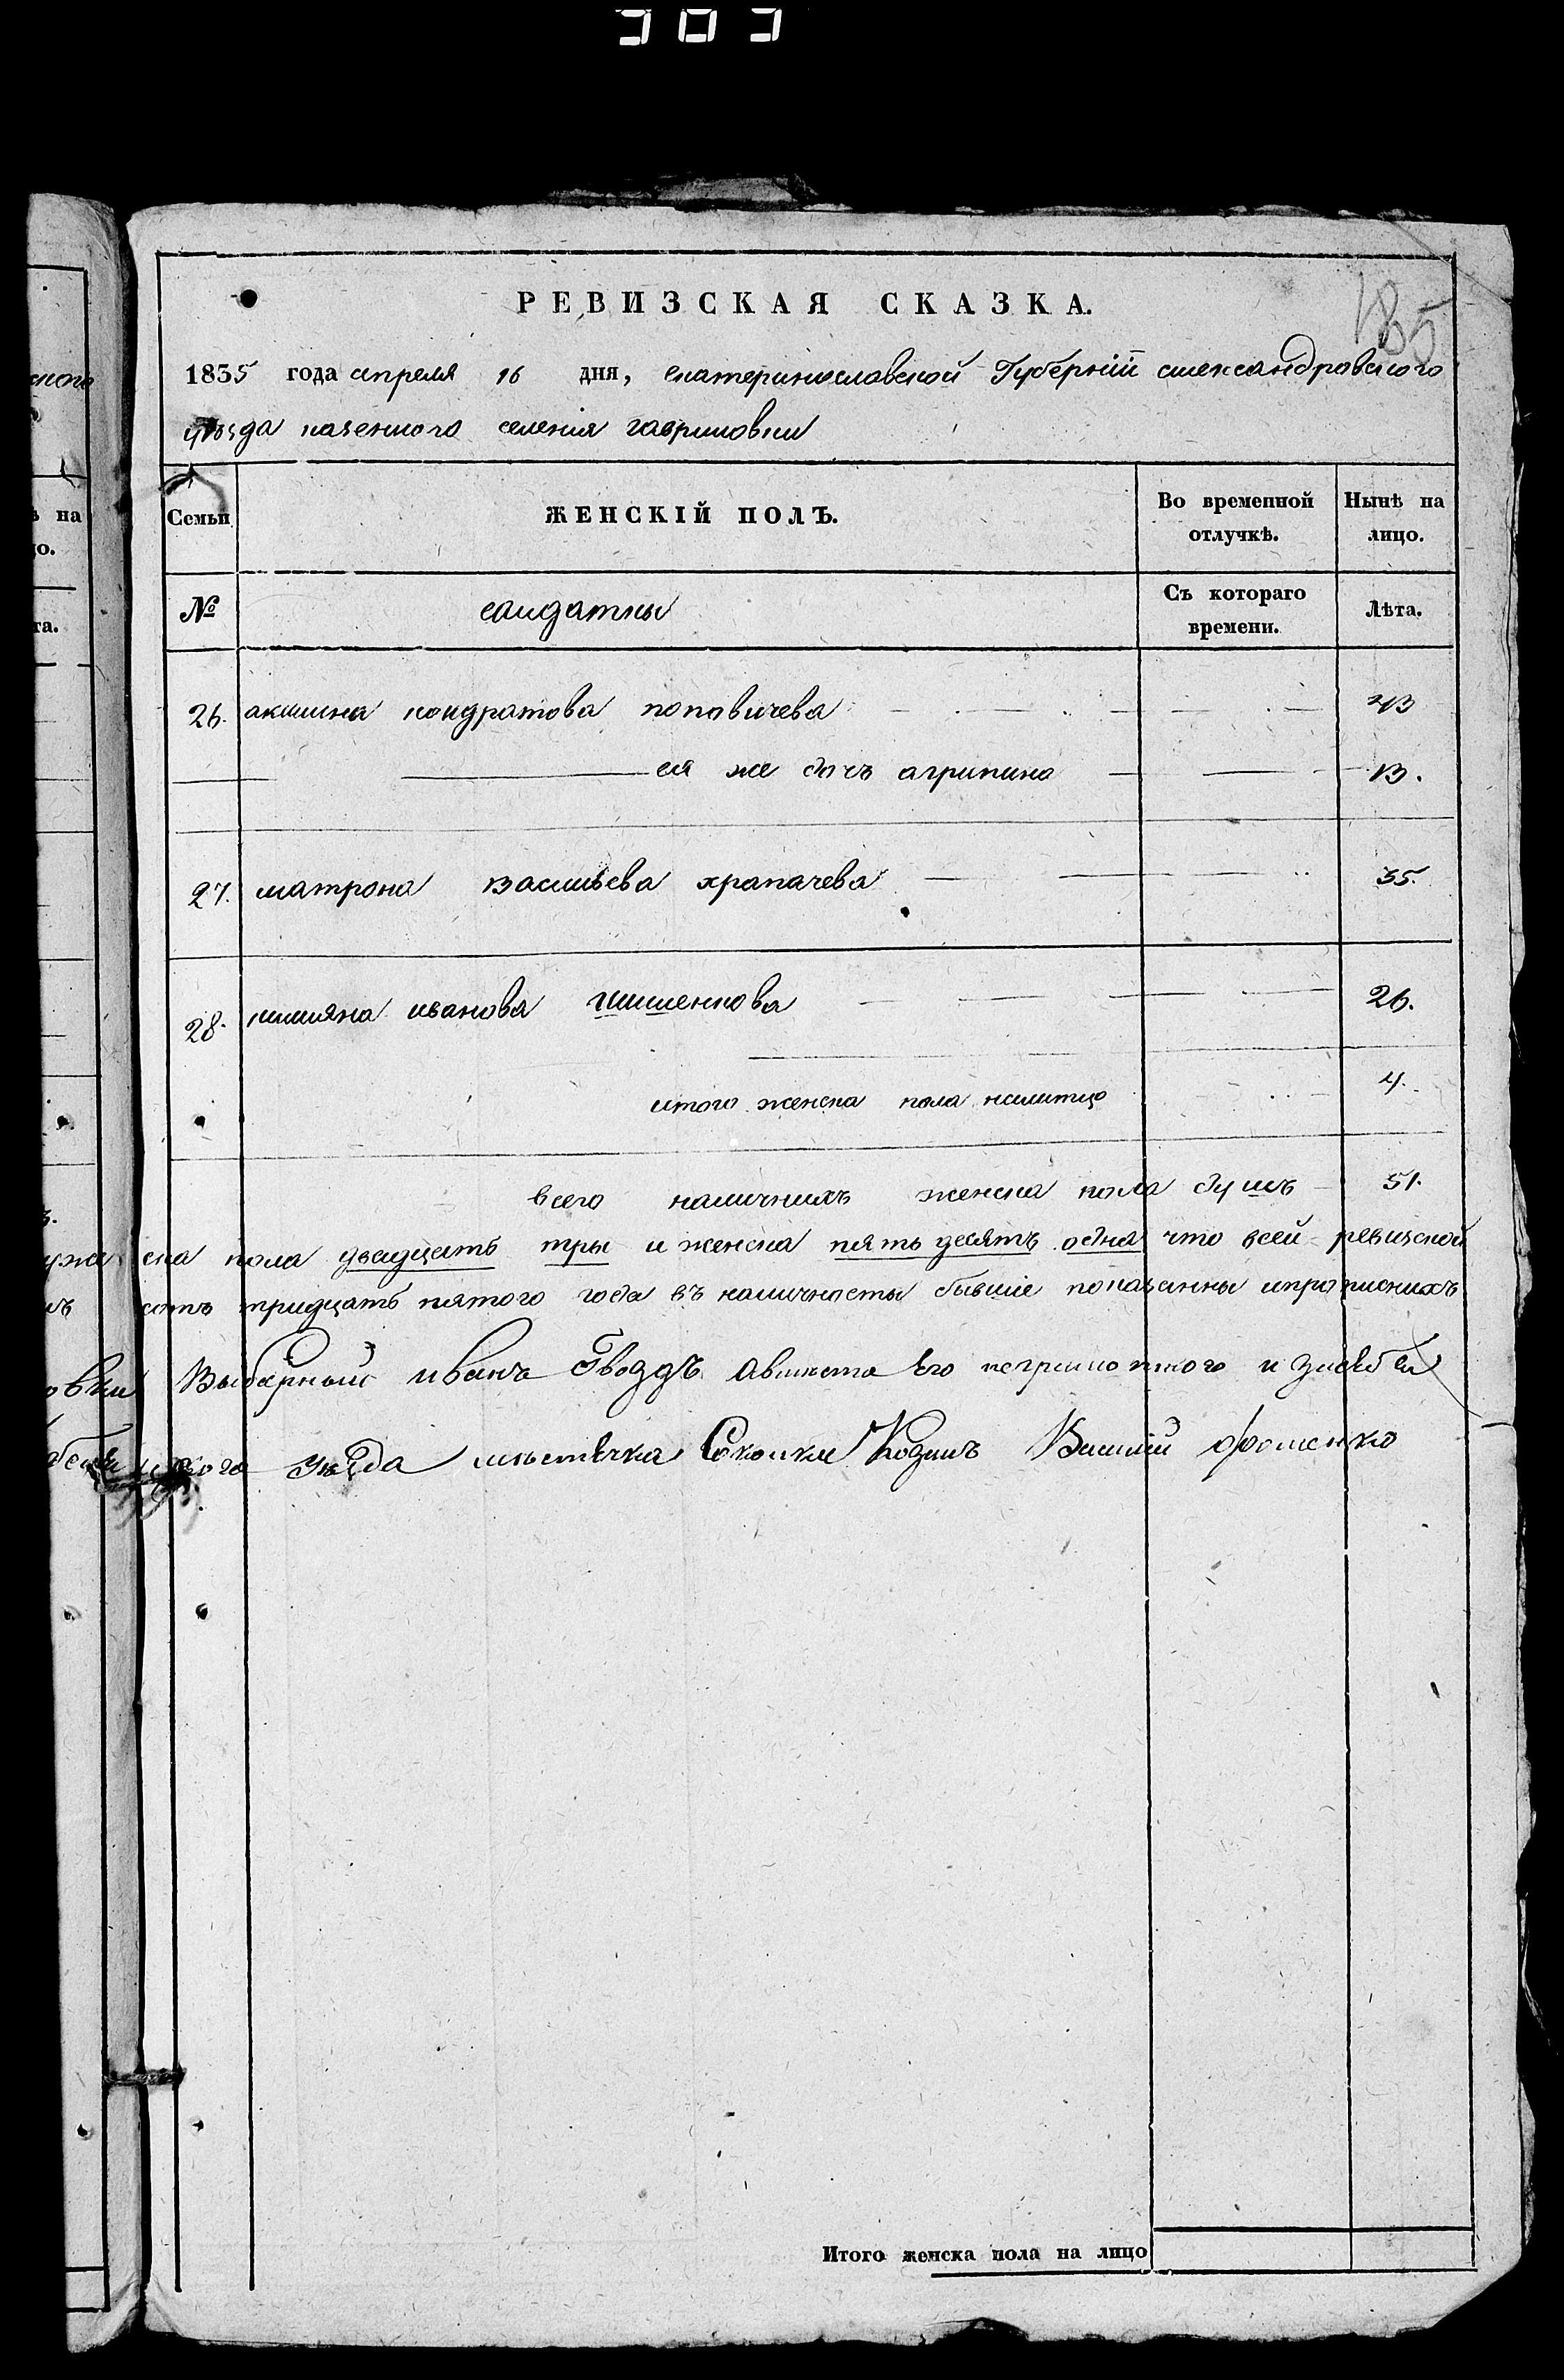 303
185
РЕВИЗСКАЯ СКАЗКА.
1835 года апреля 16 дня, екатеринославской Губернiи александровского
уезда казенного селения гавриловки
Семьи ЖЕНСКIЙ ПОЛЪ. Во временной отлучкѣ. Нынѣ на лицо.
№ салдатки Съ котораго времени. Лѣта.
26. акилина кондратова поповичева 43
ея же дочъ агрипина 13.
27. матрона васильева храпачева 35.
28. иванова 26.
итого женска пола налитцо 4.
всего наличнихъ женска пола душъ 51.
ска пола двадцать тры и женска пять десятъ одна что всей ревизской
сотъ тридцать пятого года въ наличносты бывшiе показанны
Выборный иванъ Гвоздъ его неграмотного
уѣзда мѣстѣчка Соколки Фоменко
Итого женска пола на лицо